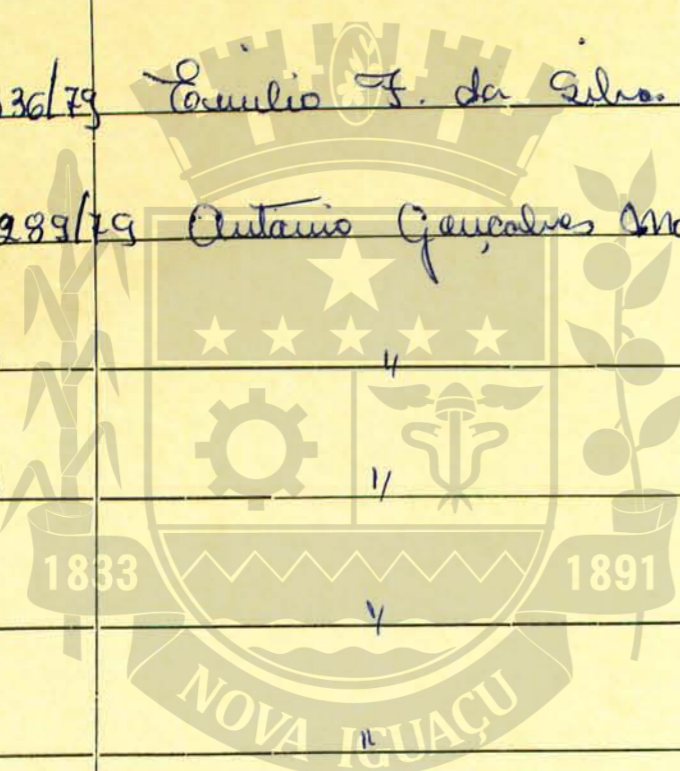 36/79 Emilio F. da Silva.
289/79 Antônio Gonçalves
"
"
"
"
1833 1891
NOVA IGUAÇU